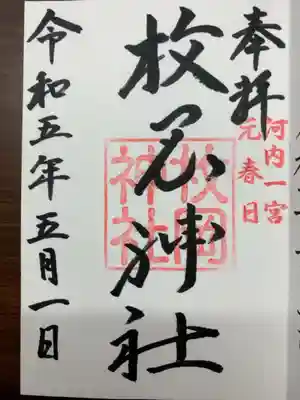 奉拝
河内一宮
元春日
枚岡神社
枚岡神社
令和五年五月一日